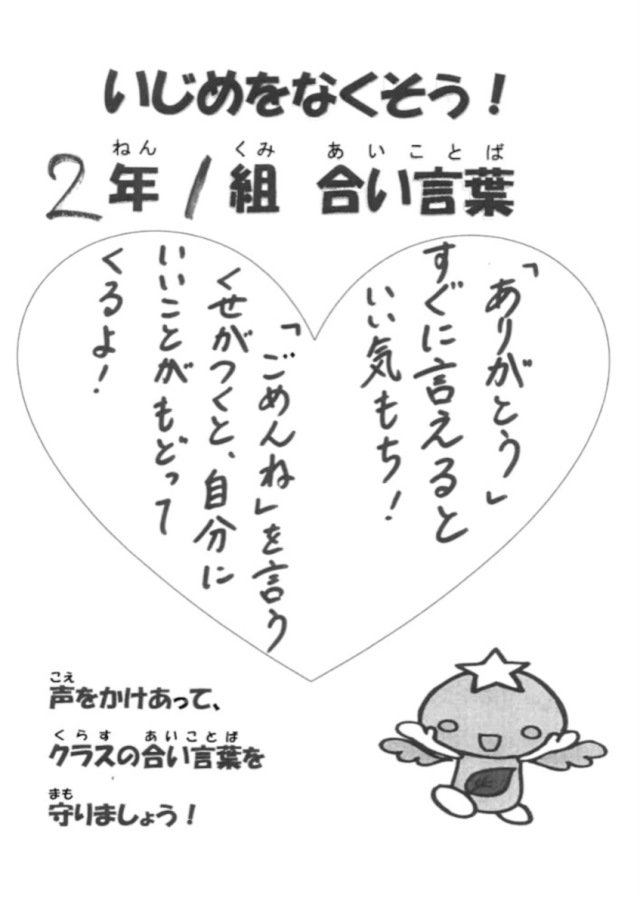 いじめをなくそう！
ねん くみ あいことば
2年1組 合い言葉
「ありがとう」
すぐに言えると
いい気もち！
「ごめんね」を言う
くせがつくと、自分に
いいことがもどって
くるよ！
こえ
声をかけあって、
くらす あいことば
クラスの合い言葉を
まも
守りましょう！